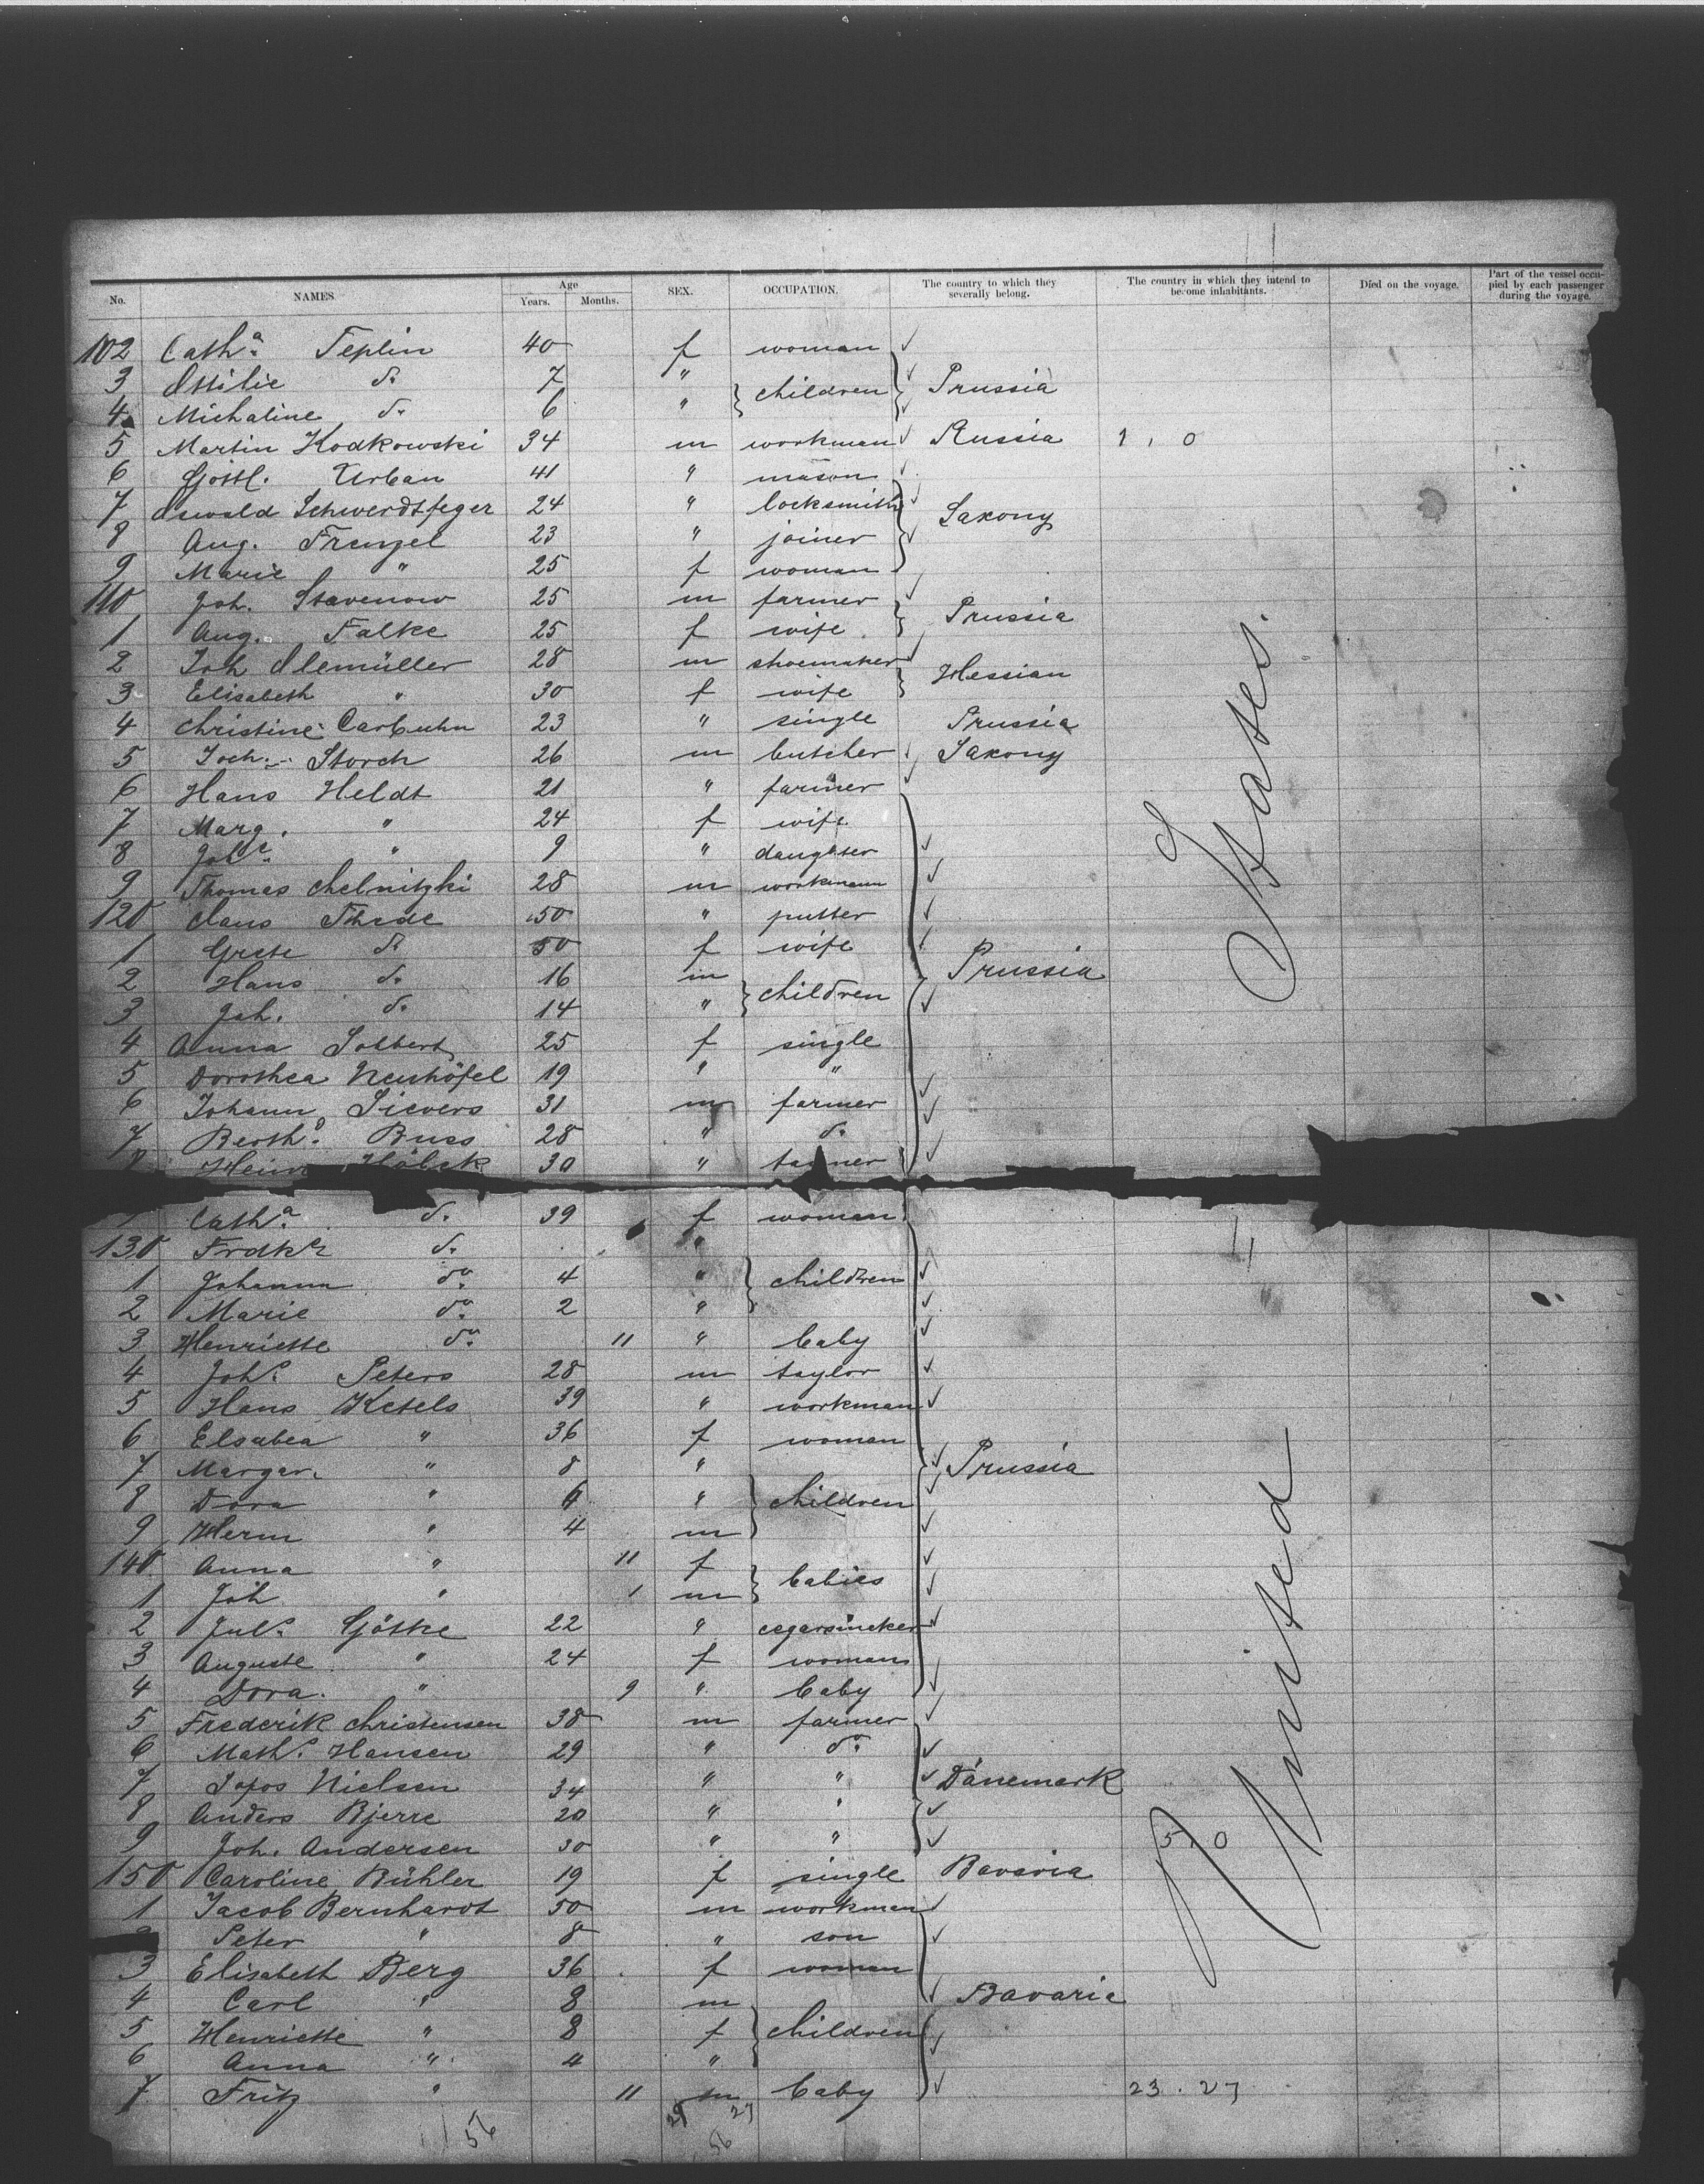 No. NAMES. Age Years. Months. SEX. OCCUPATION. The country to which they severally belong. The country in which they intend to become inhabitants. Died on the voyage. Part of the vessel occupied by each passenger during the voyage.
102 Cath.a Teplin 40 f woman
3 Ottilie do 7 " children Prussia
4 Michaline do 6 "
5 Martin Kodkowski 34 m workman Russia 1 , 0
6 Gottl. Urban 41 " mason
7 Oswald Schwerdtfeger 24 " locksmith Saxony
8 Aug. Frenzel 23 " joiner
9 Marie " 25 f woman
110 Joh. Stavenow 25 m farmer Prussia
1 Aug. Falke 25 f wife
2 Joh Olemüller 28 m shoemaker Hessian
3 Elisabeth " 30 f wife
4 Christine Carbuhn 23 " single Prussia
5 Joch. Storch 26 m butcher Saxony
6 Hans Heldt 21 " farmer
7 Marg. " 24 f wife
8 " 9 " daughter
9 Thomas Chelnitzki 28 m workmann
120 Claus Thede 50 " putter
1 Grete do 50 f wife Prussia
2 Hans do 16 m children
3 Joh. do 14 "
4 Anna 25 f single
5 Dorothea Neuhöfel 19 " "
6 Johann Sievers 31 m farmer
7 Berth.d Buss 28 " do
8 30 "
Cath.a do 39 f woman
130 Frdke do "
1 Johanna do 4 " children
2 Marie do 2 "
3 Henriette do 11 " baby
4 Joh.s Peters 28 m taylor
5 Hans Ketels 39 " workman
6 Elsabea " 36 f woman
7 Margar. " 8 " Prussia
8 Dora " 6 " children
9 Herm " 4 m
140 Anna " 11 f babies
1 Joh " 1 m
2 Jul.s Götke 22 "
3 Auguste " 24 f woman
4 Dora. " 9 " baby
5 Frederik Christensen 38 m farmer
6 Math.s Hansen 29 " do
7 Nielsen 34 " " Dänemark
8 Anders Bjerre 20 " "
9 Joh. Andersen 30 " " 5 , 0
150 Caroline Bühler 19 f single Bavaria
1 Jacob Bernhardt 50 m workman
Peter " 8 " son
3 Elisabeth Berg 36 f woman
4 Carl " 8 m Bavaria
5 Henriette " 8 f children
6 Anna " 4 "
7 Fritz " 11 m baby 23 . 27
56 29 27
56
United States.